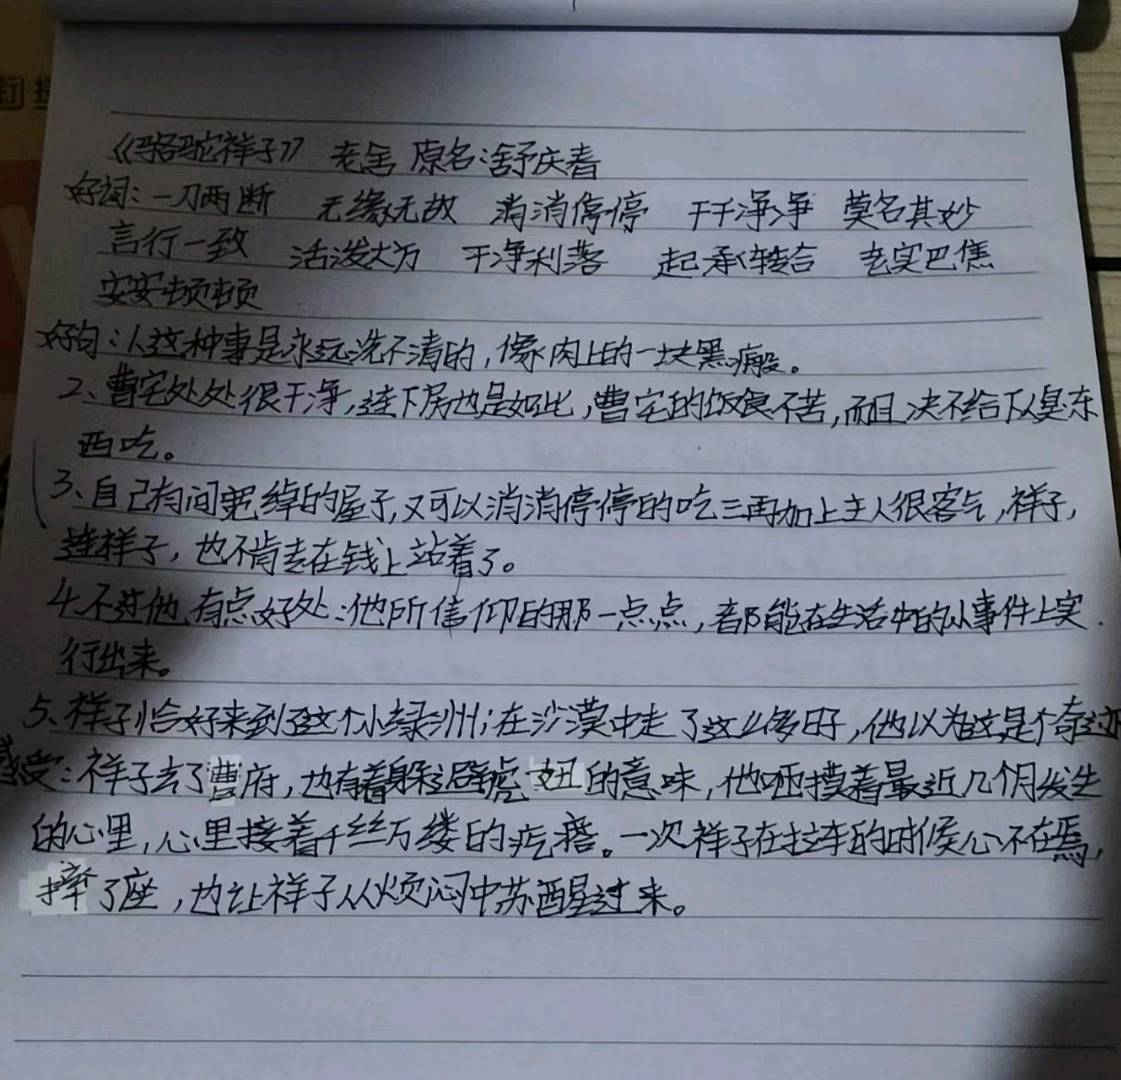 《骆驼祥子》 老舍 原名:舒庆春
好词:一刀两断 无缘无故 消消停停 干干净净 莫名其妙
言行一致 活泼大方 干净利落 起承转合 老实巴焦
安安顿顿
好句:1、这种事是永远洗不清的,像肉上的一块黑瘢。
2、曹宅处处很干净,连下房也是如此,曹宅的饭食不苦,而且决不给下人臭东
西吃。
3、自己有间宽绰的屋子,又可以消消停停的吃三再加上主人很客气,祥子,
连祥子,也不肯去在钱上站着了。
4.不过他,有点好处:他所信仰的那一点点,都能在生活中的小事件上实
行出来。
5、祥子恰好来到了这个小绿洲;在沙漠中走了这么多日子,他以为这是个奇迹
感受:祥子去了曹府,也有着躲避虎妞的意味,他咂摸着最近几个月发生
的心里,心里接着千丝万缕的疙瘩。一次祥子在拉车的时候心不在焉,
摔了座,也让祥子从烦闷中苏醒过来。